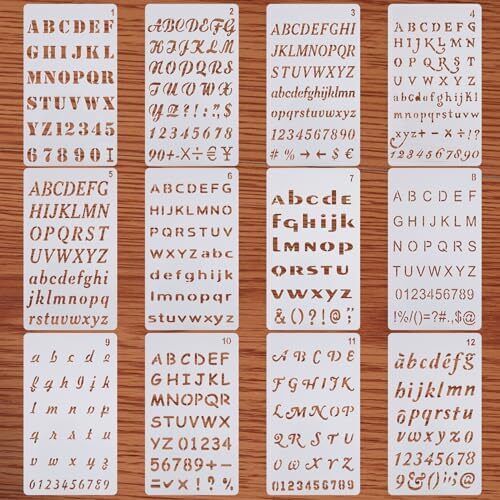 1
ABCDEF
GHIJKL
MNOPQR
STUVWX
YZ12345
678901
2
ABCDEF
GHIJKLM
NOPQRS
TUVWX
YZ?!:,$
12345678
90+-×÷€¥
3
ABCDEFGH
IJKLMNOPQR
STUVWXYZ
abcdefghijklmn
opqrstuvwxyz
1234567890
#%→←$€
4
ABCDEFG
HIJKLMN
OPQRST
UVWXYZ
abcdefghi
jklmnopqrstuvw
xyz+-×÷!?
1234567890
5
ABCDEFG
HIJKLMN
OPQRST
UVWXYZ
abcdefghi
jklmnopq
rstuvwxyz
6
ABCDEFG
HIJKLMNO
PQRSTUV
WXYZabc
defghijk
lmnopqr
stuvwxyz
7
Abcde
fghijk
lmnop
qrstu
vwxyz
&()?!@;"
8
ABCDEF
GHIJKLM
NOPQRS
TUVWXYZ
0123456789
!%/()=?#.,$@
9
abcde
fghijk
lmnop
qrstu
vwxyz
0123456789
10
ABCDEF
GHIJKL
MNOPQR
STUVWX
YZ01234
56789+-
11
ABCDE
FGHIJK
LMNOP
QRSTU
VWXYZ
0123456789
12
àbcdéfg
hijklmn
opqrstu
vwxyz0
12345678